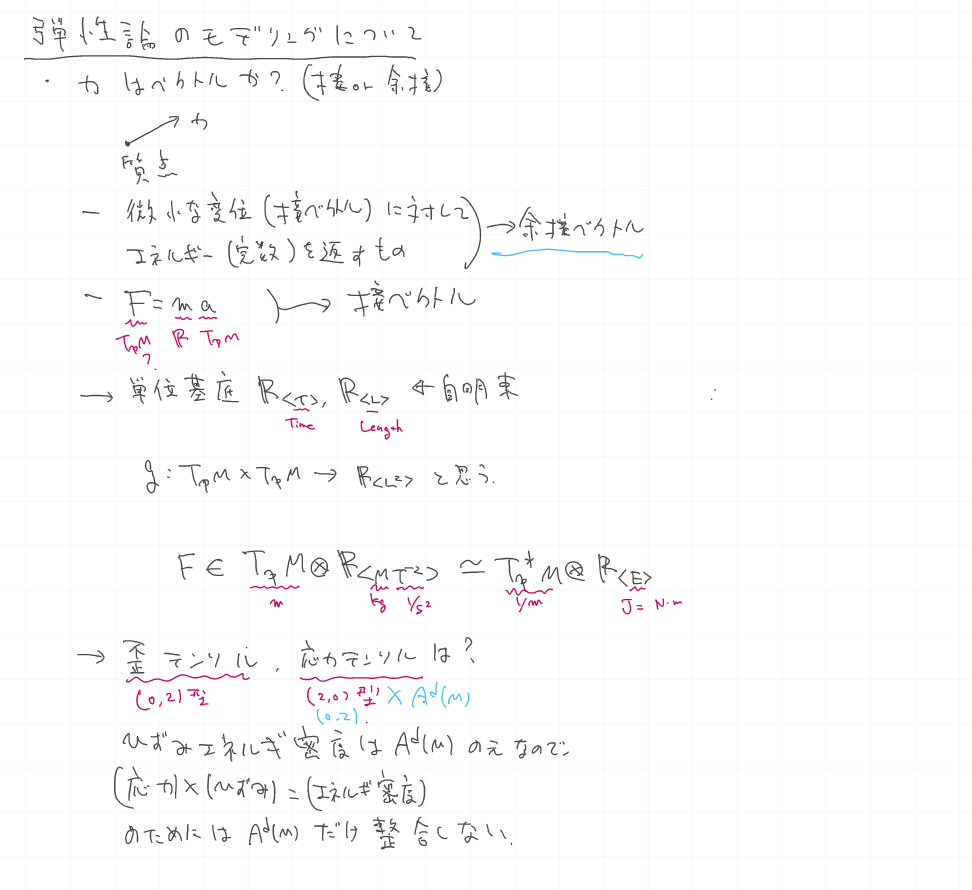 弾性論のモデリングについて
・ 力はベクトルか? (接or 余接)
力
質点
- 微小な変位(接ベクトル)に対して
エネルギー(実数)を返すもの → 余接ベクトル
- F = m a → 接ベクトル
TpM ? ℝ TpM
→ 単位基底 ℝ<T>, ℝ<L> ← 自明束
Time Length
g: TpM × TpM → ℝ<L²> と思う.
F ∈ TpM ⊗ ℝ<MT⁻²> ≃ Tp*M ⊗ ℝ<E>
m kg 1/s² 1/m J = N·m
→ 歪テンソル, 応力テンソルは?
(0,2)型 (2,0)型 × Aᵈ(M)
(0,2).
ひずみエネルギ密度は Aᵈ(M) の元なので
(応力)×(ひずみ) = (エネルギ密度)
のためには Aᵈ(M) だけ整合しない.